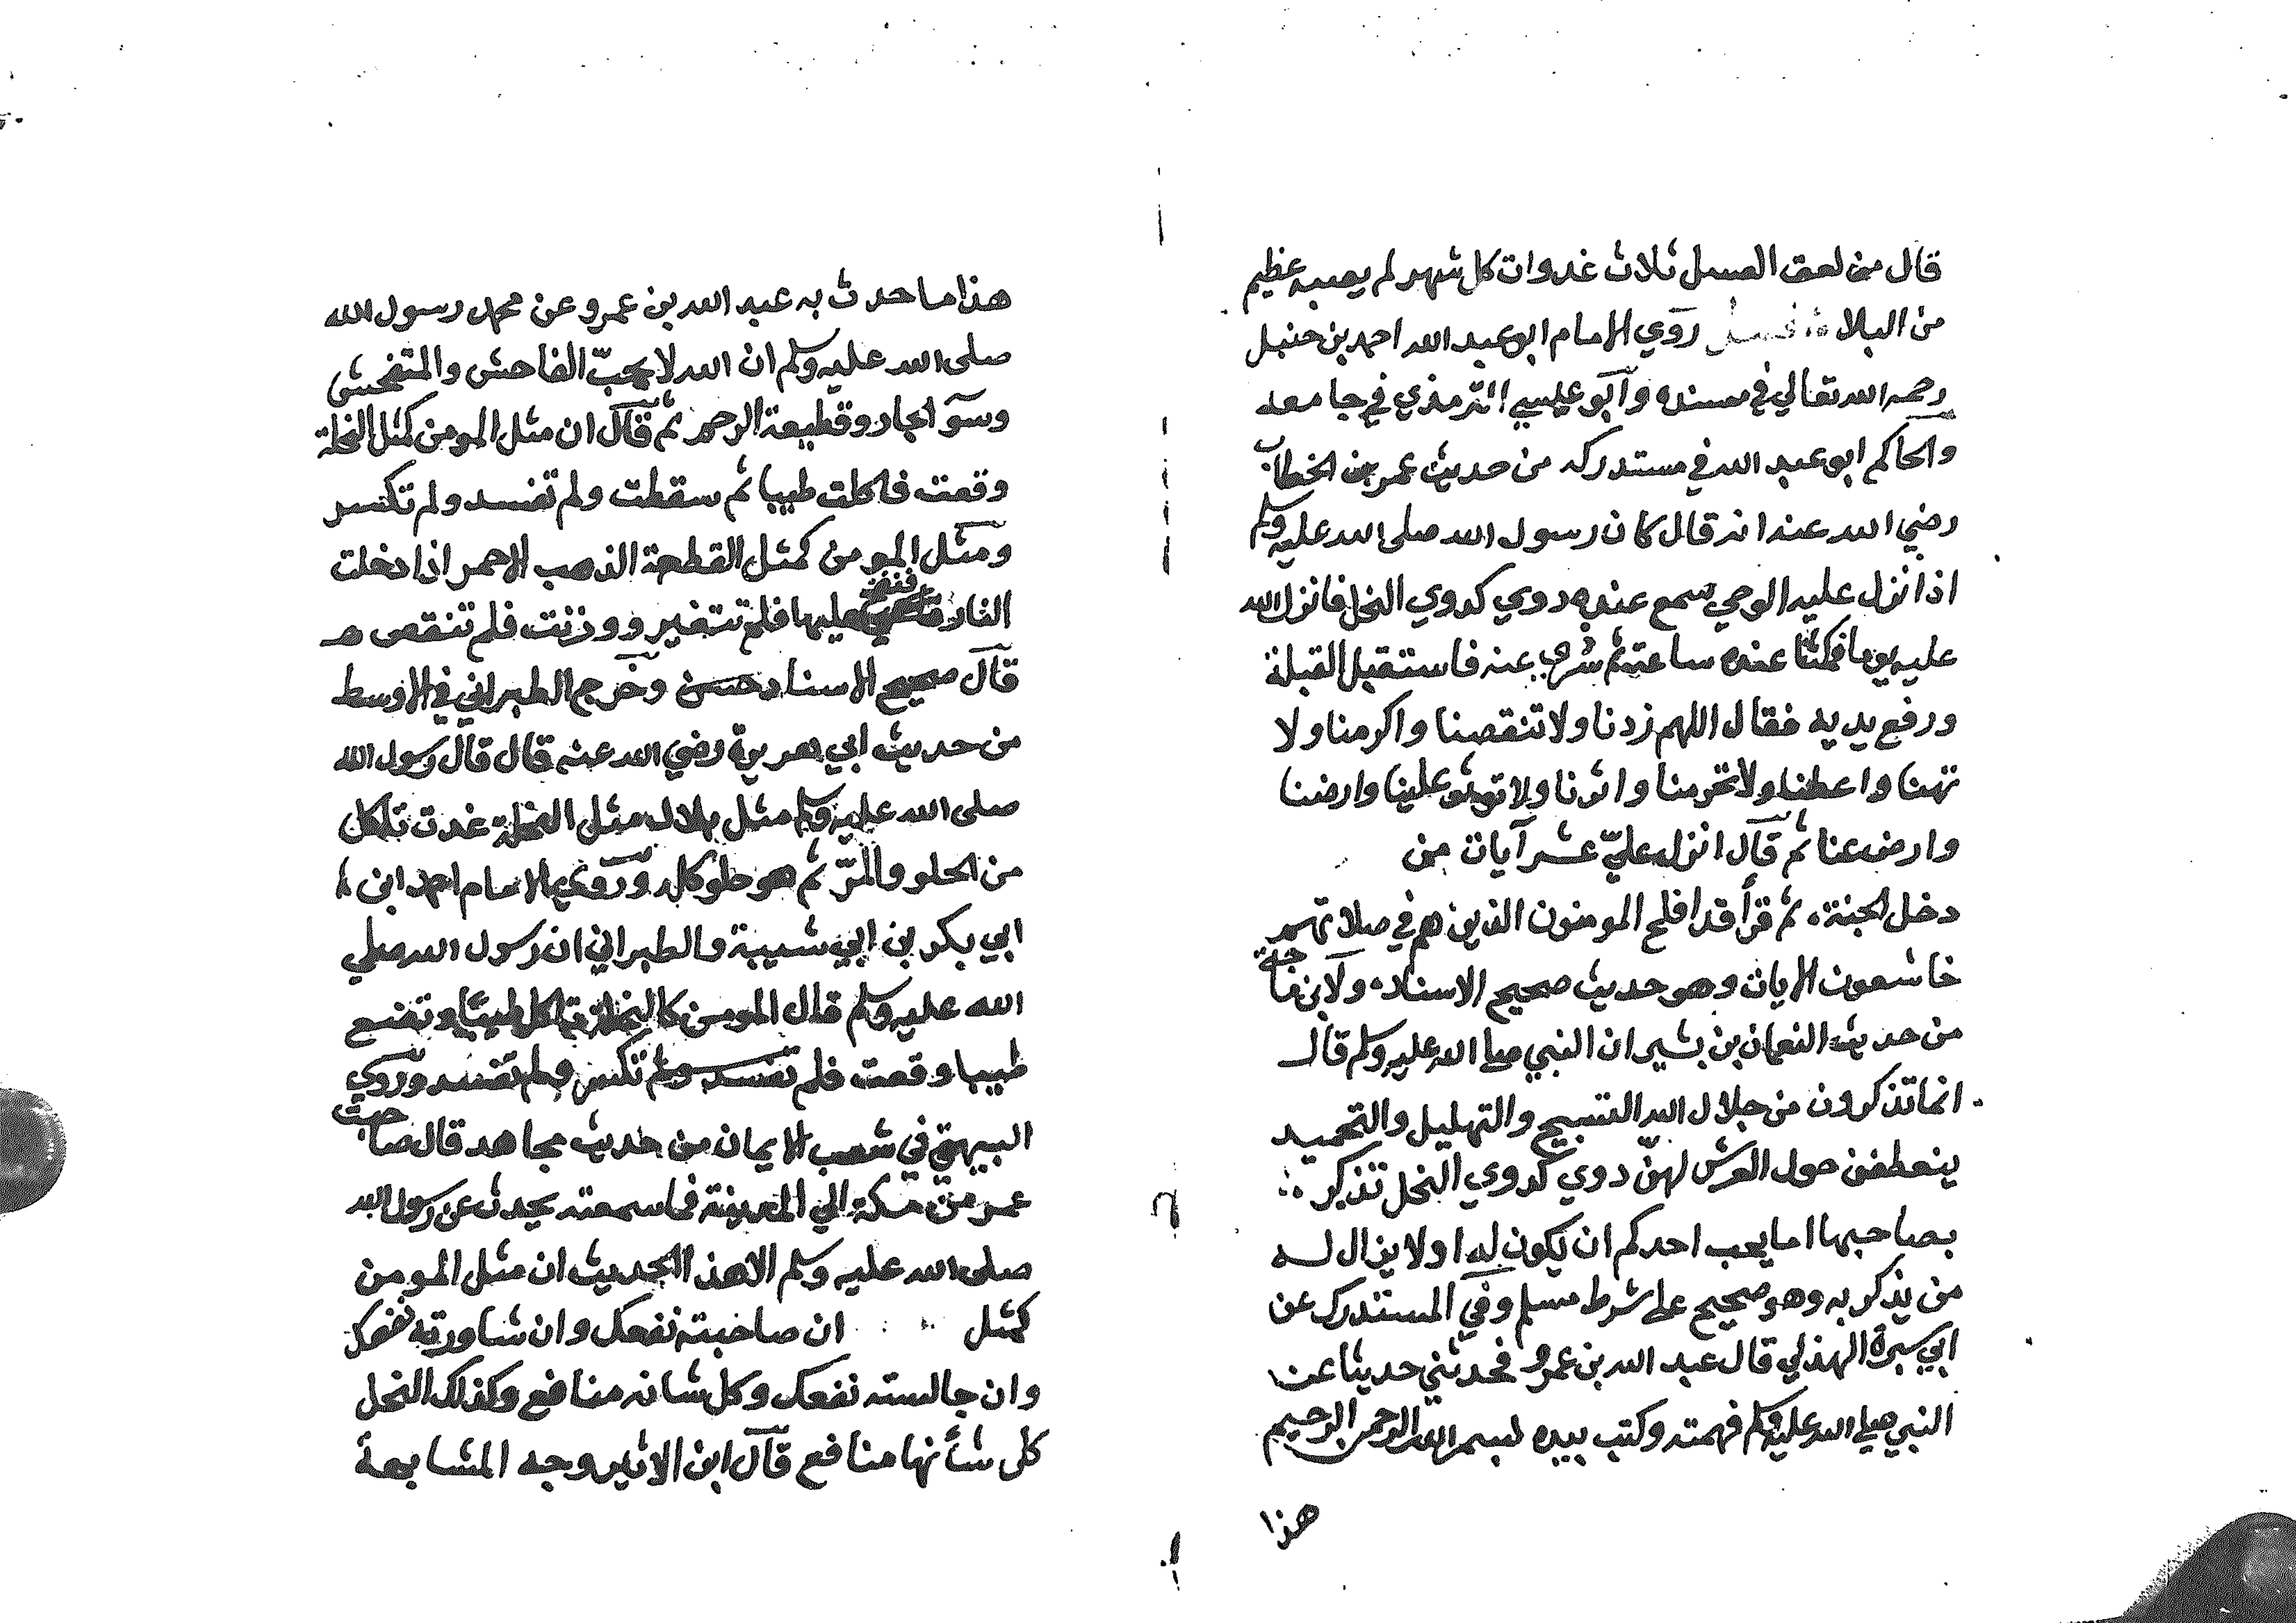 قال من لعق العسل ثلاث غدوات كل شهر لم يصبه عظيم
من البلاء فصل روي الامام ابو عبد الله احمد بن حنبل
رحمه الله تعالي في مسنده وابو عيسي الترمذي في جامعه
والحاكم ابو عبد الله في مستدركه من حديث عمر بن الخطاب
رضي الله عنه انه قال كان رسول الله صلى الله عليه وسلم
اذا نزل عليه الوحي سمع عنده دوي كدوي النحل فانزل الله
عليه يوما فمكثنا عنده ساعة ثم سري عنه فاستقبل القبلة
ورفع يديه فقال اللهم زدنا ولا تنقصنا واكرمنا ولا
تهنا واعطنا ولا تحرمنا واثرنا ولا توثر علينا وارضنا
وارض عنا ثم قال انزل عليّ عشر آيات من
دخل الجنة، ثم قرأ قد افلح المومنون الذين هم في صلاتهم
خاشعون الايات وهو حديث صحيح الاسناد، ولابن ماجة
من حديث النعمان بن بشير ان النبي صلي الله عليه وسلم قال
انما تذكرون من جلال الله التسبيح والتهليل والتحميد
ينعطفن حول العرش لهنّ دوي كدوي النحل تذكر
بصاحبها اما يحب احدكم ان يكون له او لا يزال له
من يذكر به وهو صحيح على شرط مسلم وفي المستدرك عن
ابي سبرة الهذلي قال عبد الله بن عمرو فحدثني حديثا عن
النبي صلي الله عليه وسلم فهمته وكتب بيده بسم الله الرحمن الرحيم
هذا
هذا ما حدث به عبد الله بن عمرو عن محمد رسول الله
صلى الله عليه وسلم ان الله لا يحبّ الفاحش والمتفحش
وسؤ الجار وقطيعة الرحم ثم قال ان مثل المومن كمثل النحلة
وقعت فاكلت طيبا ثم سقطت ولم تفسد ولم تكسر
ومثل المومن كمثل القطعة الذهب الاحمر اذا دخلت
النار فنفخ عليها فلم تتغير ووزنت فلم تنقص
قال صحيح الاسناد حسن وخرج الطبراني في الاوسط
من حديث ابي هريرة رضي الله عنه قال قال رسول الله
صلى الله عليه وسلم مثل بلال مثل النحلة غدت تاكل
من الحلو والمرّ ثم هو حلو كله وروي الامام احمد ابن
ابي بكر بن ابي شيبة والطبراني ان رسول الله صلي
الله عليه وسلم قال المومن كالنحلة تاكل طيبا وتضع
طيبا وقعت فلم تفسد ولم تكسر ولم تفسد وروي
البيهقي في شعب الايمان من حديث مجاهد قال صاحبت
عمر من مكة الي المدينة فما سمعته يحدث عن رسول الله
صلى الله عليه وسلم الا هذا الحديث ان مثل المومن
كمثل ان صاحبته نفعك وان شاورته نفعك
وان جالسته نفعك وكل شانه منافع وكذلك النحل
كل شأنها منافع قال ابن الاثير وجه المشابهة